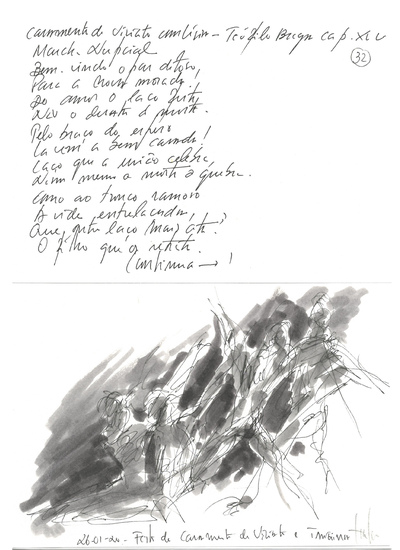 Casamento de Viriato continua - Teófilo Braga cap. XLV
32
March. Nupcial
Bem. vindo o par ditoso,
Para a nova morada!
Do amor o laço
Não o desata a morte.
Pelo braço do esposo
La vem a bem casada!
Laço que a união celebra,
Nem mesmo a morte o quebra.
Como ao tronco ramoso
A vide entrelaçada,
Que, outro laço mais ata?
O filho que o
Continua → !
26-01-20 - Festa de Casamento de Viriato e